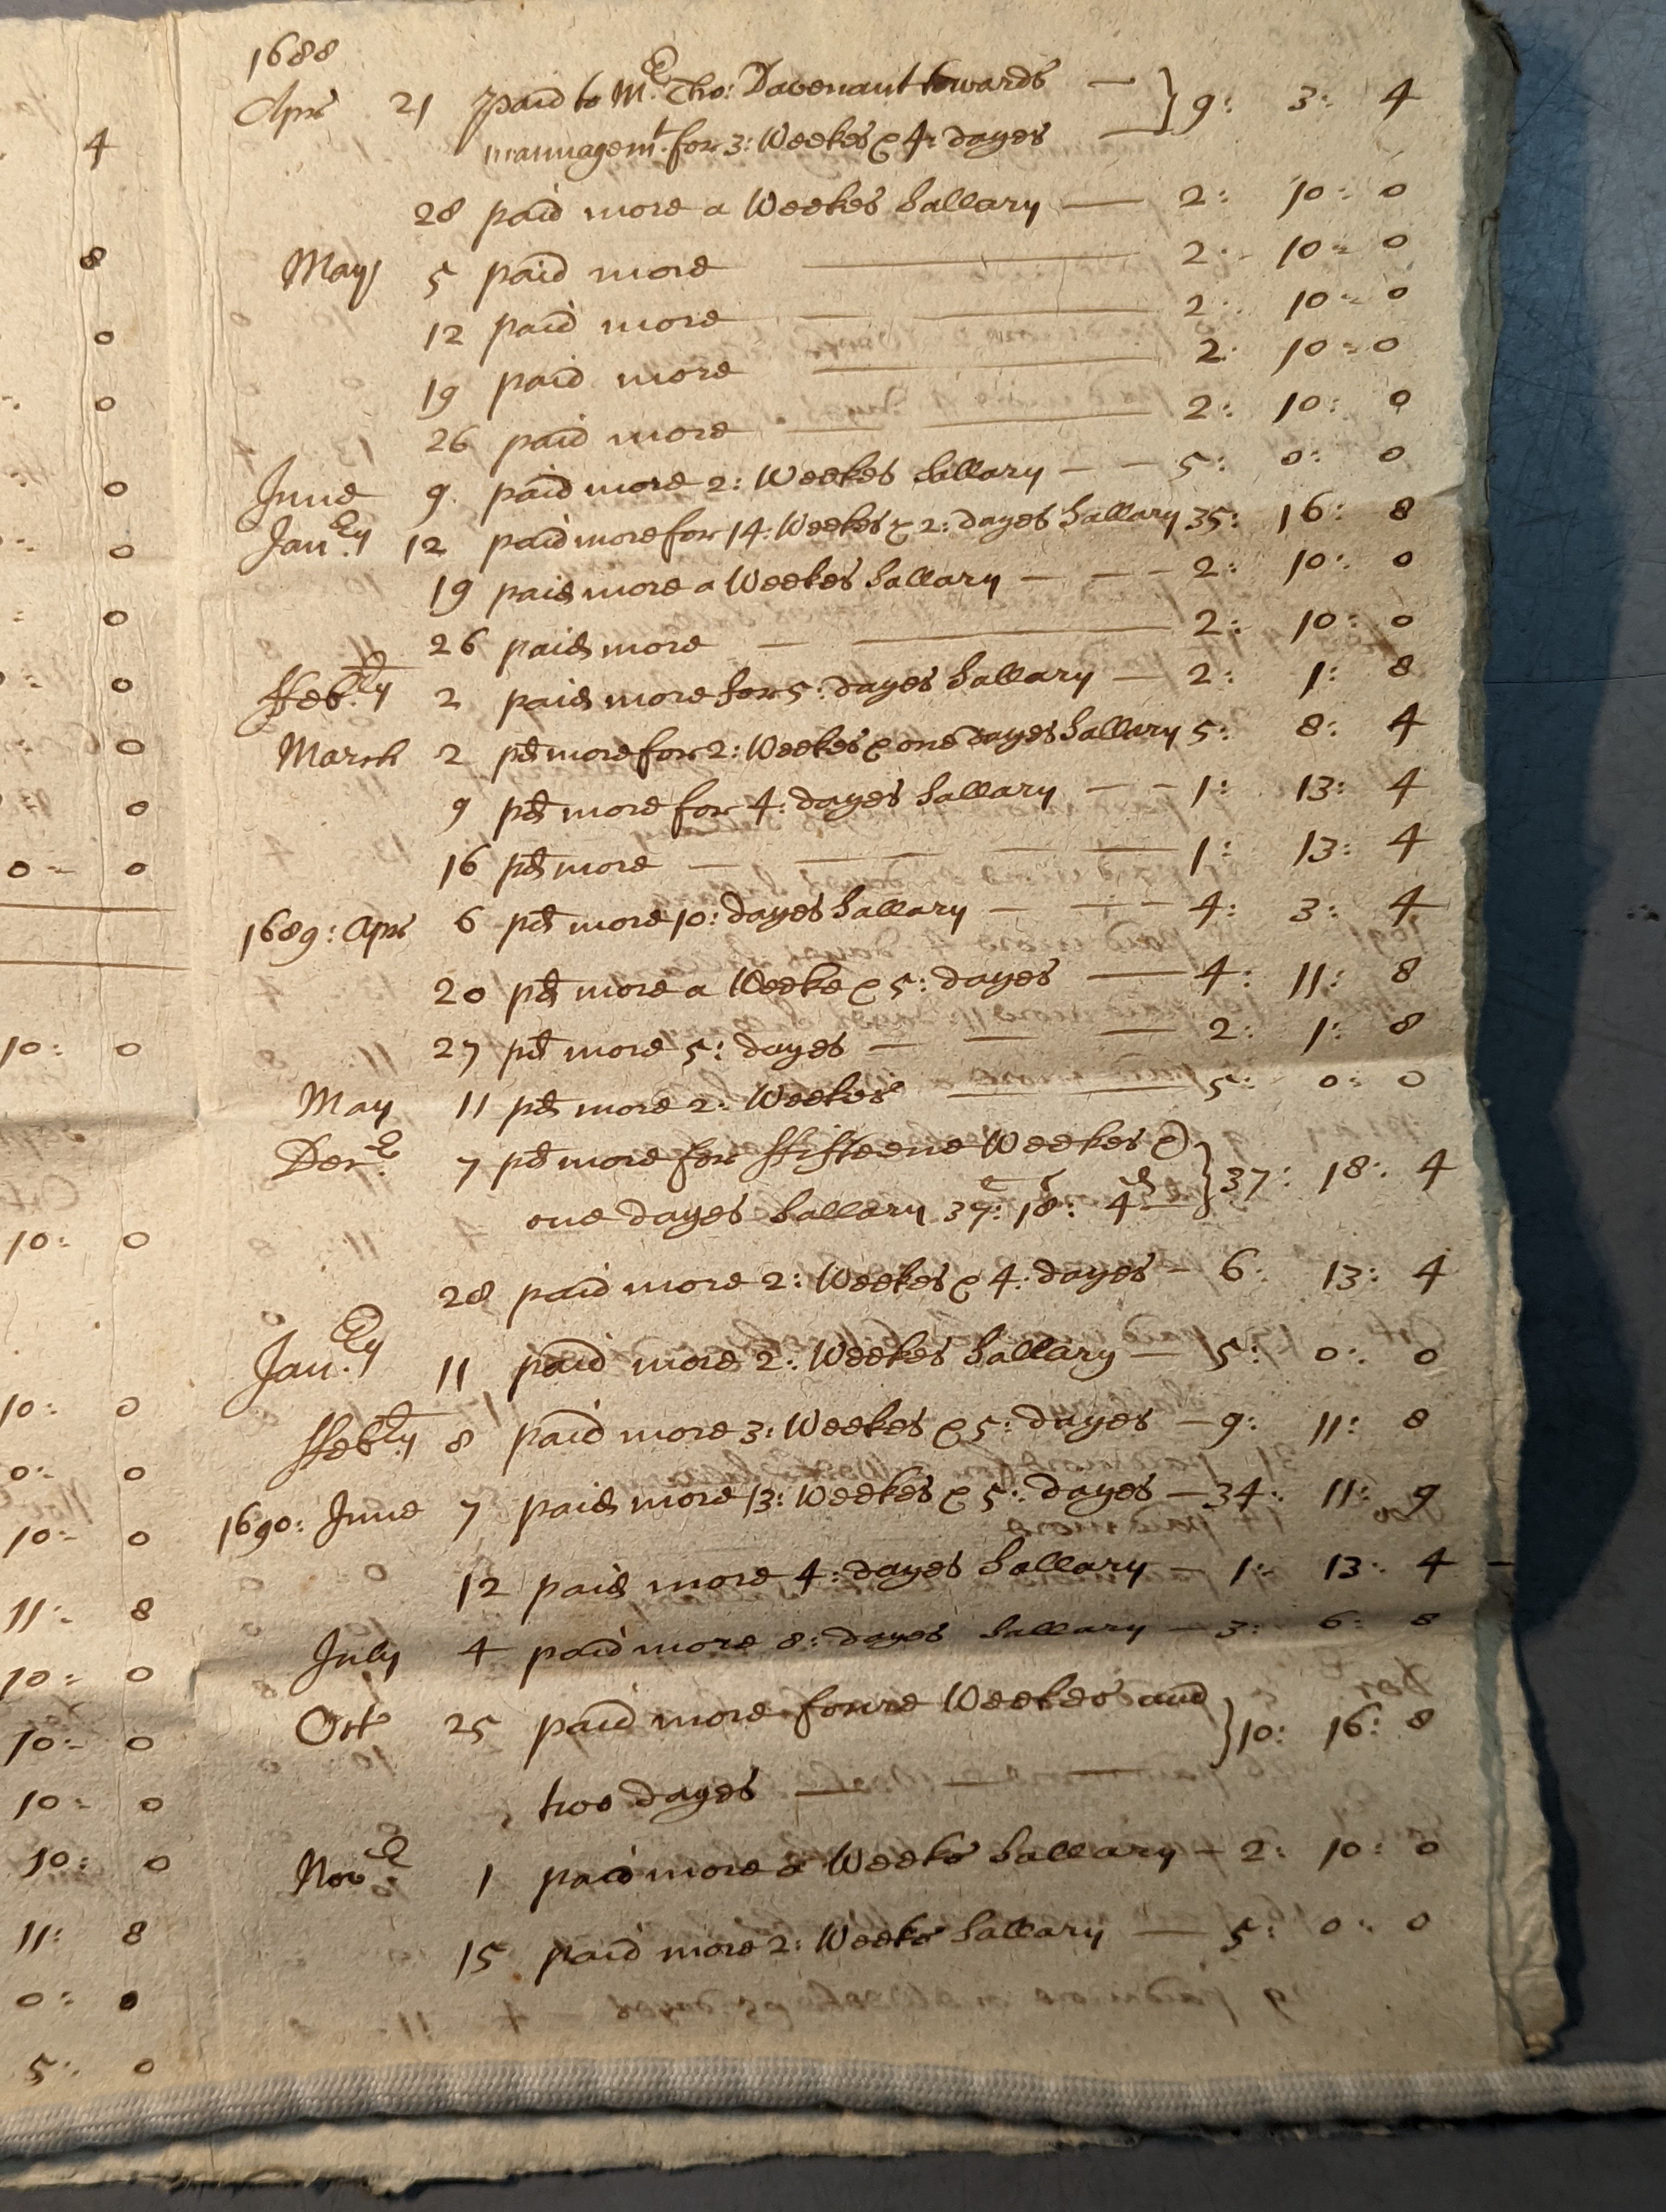 1688
Apr 21 paid to Mr. Tho: Davenant towards — } 9: 3: 4
mannagemt. for 3: Weekes & 4: dayes —
28 paid more a Weekes Sallary — 2: 10: 0
May 5 paid more — 2: 10: 0
12 paid more — 2: 10: 0
19 paid more — 2: 10: 0
26 paid more — 2: 10: 0
June 9 paid more 2: Weekes Sallary — 5: 0: 0
Janry 12 paid more for 14: Weekes & 2: dayes Sallary 35: 16: 8
19 paid more a Weekes Sallary — 2: 10: 0
26 paid more — 2: 10: 0
ffebry 2 paid more for 5: dayes Sallary — 2: 1: 8
March 2 pd more for 2: Weekes & one dayes Sallary 5: 8: 4
9 pd more for 4: dayes Sallary — 1: 13: 4
16 pd more — 1: 13: 4
1689: Apr 6 pd more 10: dayes Sallary — 4: 3: 4
20 pd more a Weeke & 5: dayes — 4: 11: 8
27 pd more 5: dayes — 2: 1: 8
May 11 pd more 2: Weekes — 5: 0: 0
Decr. 7 pd more for ffifteene Weekes & } 37: 18: 4
one dayes Sallary 37: 18: 4d —
28 paid more 2: Weekes & 4: dayes — 6: 13: 4
Janry 11 paid more 2: Weekes Sallary — 5: 0: 0
ffebry 8 paid more 3: Weekes & 5: dayes — 9: 11: 8
1690: June 7 paid more 13: Weekes & 5: dayes — 34: 11: 9
12 paid more 4: dayes Sallary — 1: 13: 4 —
July 4 paid more 8: dayes Sallary — 3: 6: 8
Oct 25 paid more foure Weekes and } 10: 16: 8
two dayes —
Novr 1 paid more a Weeks Sallary — 2: 10: 0
15 paid more 2: Weeks Sallary — 5: 0: 0
4
8
0
0
0
0
0
0
0
0
0 0
10: 0
10: 0
10: 0
0: 0
10: 0
11: 8
10: 0
10: 0
10: 0
10: 0
11: 8
0: 0
5: 0